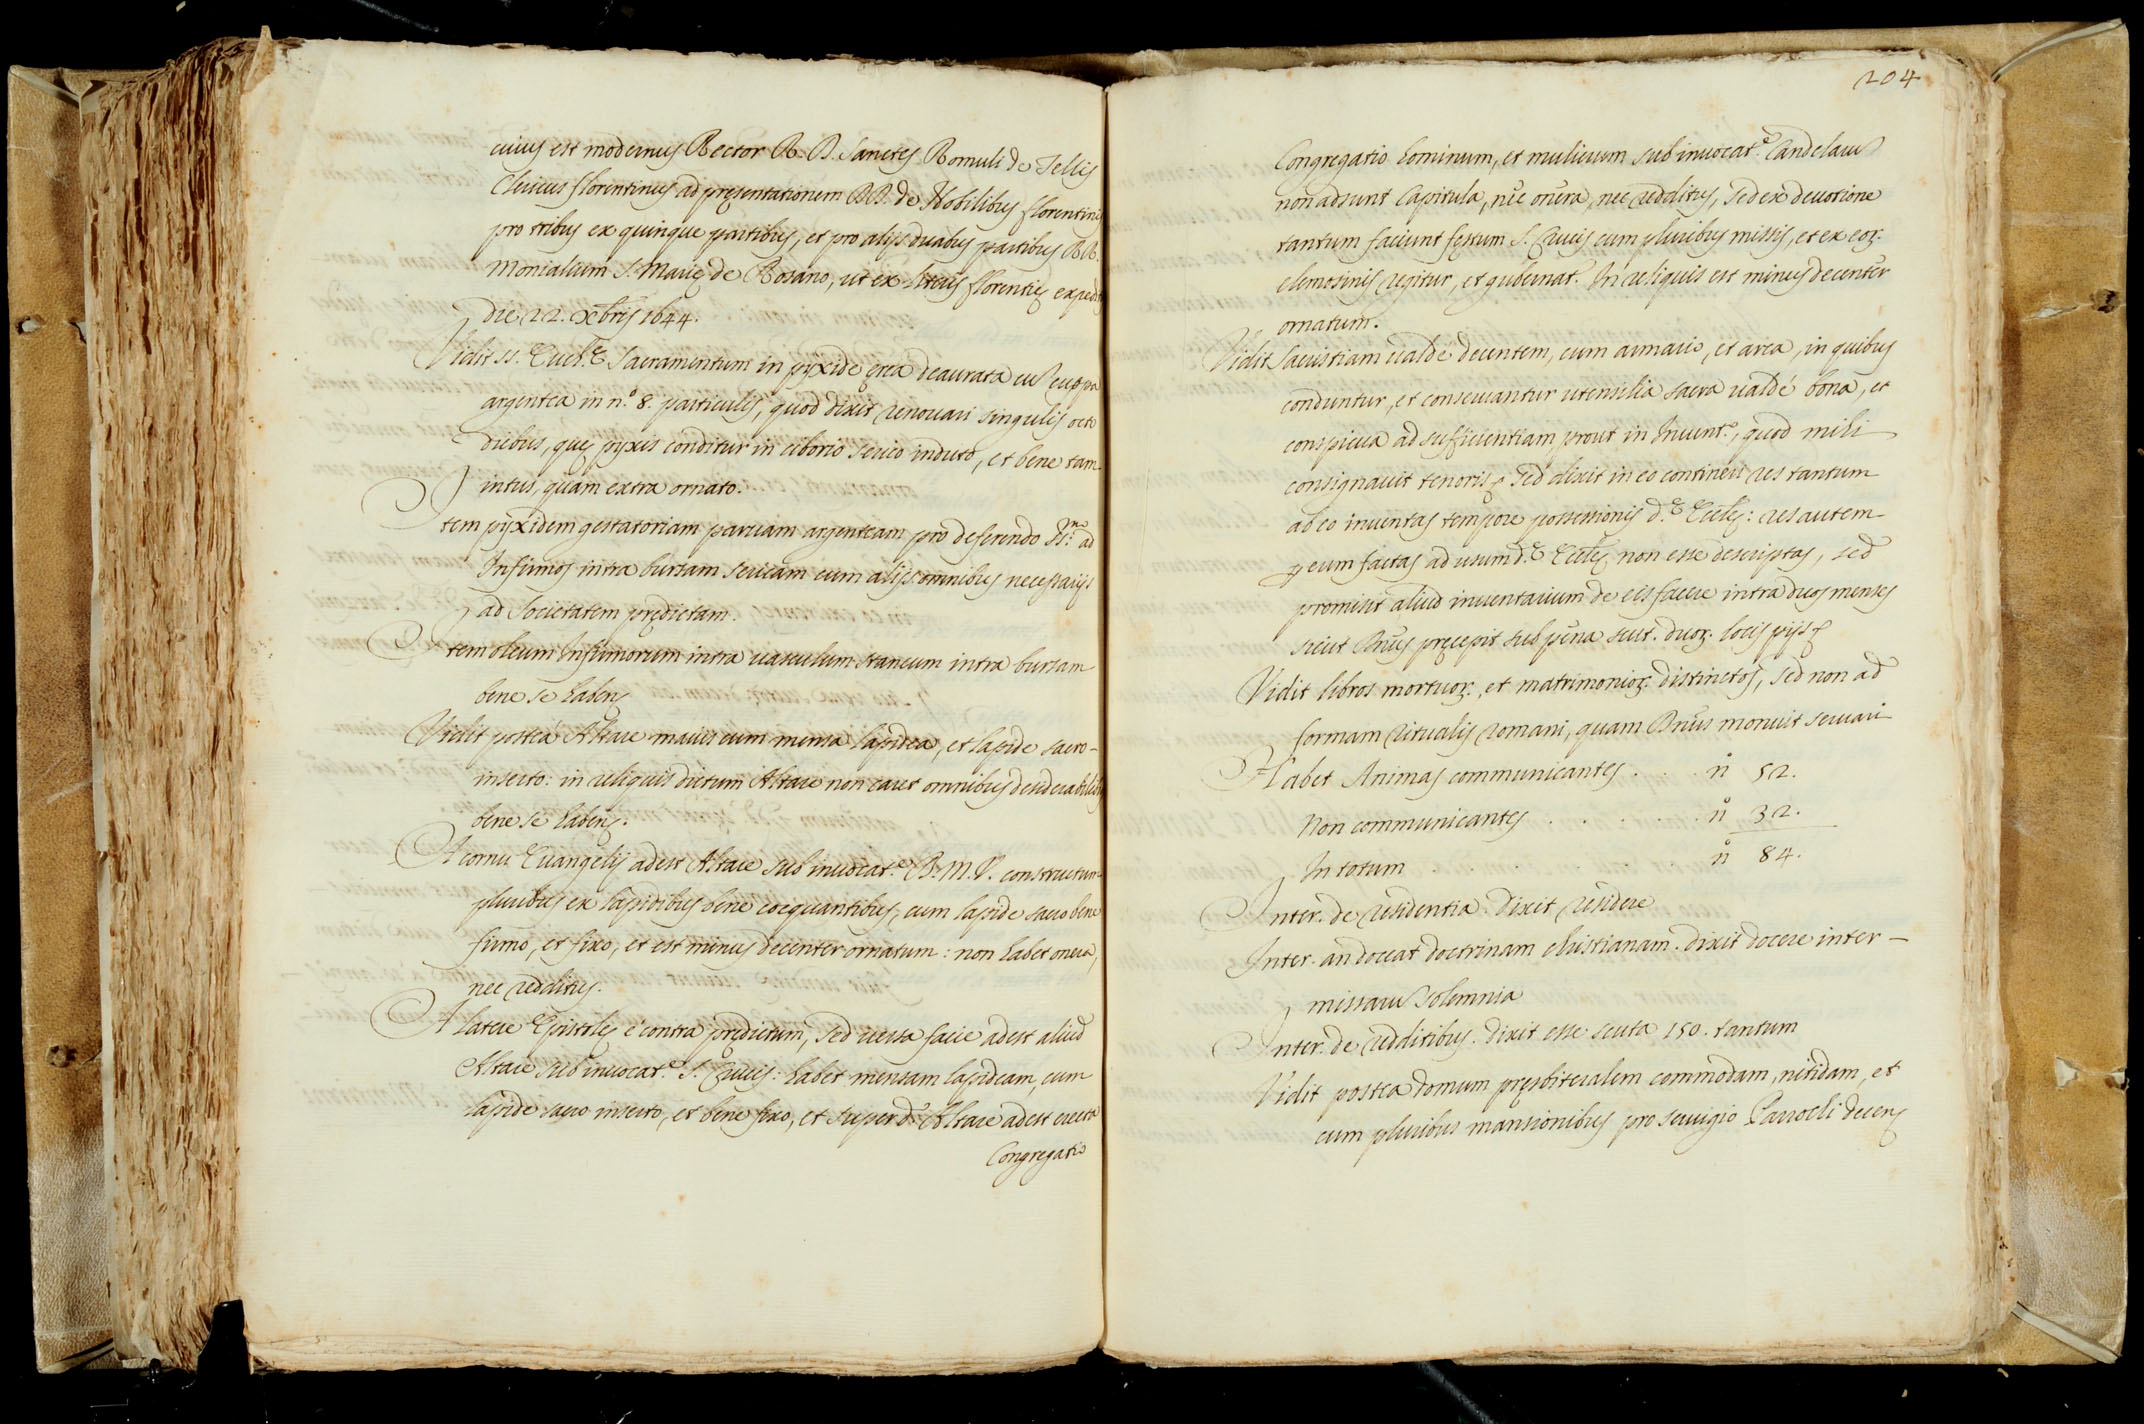 cuius est modernus Rector R. D. Sanctes Romuli de Tellis
Clericus florentinus ad presentationem DD. de Nobilibus florentini
pro tribus ex quinque partibus, et pro alijs duabus partibus RR.
Monialium S. Marię de Rosano, ut ex literis florentię exped
die 22. Xbris 1644.
Vidit SS. Euch.ę Sacramentum in pyxide ęrea deaurata cū cuppa
argentea in n.º 8. particulis, quod dixit renouari singulis octo
diebus, quę pyxis conditur in ciborio serico induto, et bene tam
intus, quam extra ornato.
Item pyxidem gestatoriam paruam argenteam pro deferendo SS.mo ad
Infirmos intra bursam sericam cum alijs omnibus necessarijs
ad Societatem prędictam.
Item oleum Infirmorum intra uasculum staneum intra bursam
bene se habens
Vidit posteà Altare maius cum mensa lapidea, et lapide sacro
inserto: in reliquis dictum Altare non caret omnibus desiderabilib
bene se habens.
A cornu Euangelij adest Altare sub inuocat.e B. M. V. constructum
pluribus ex lapidibus bene coequantibus, cum lapide sacro bene
firmo, et fixo, et est minus decenter ornatum: non habet onera,
nec redditus.
A latere Epistolę è contra prędictum, sed uersa facie adest aliud
Altare sub inuocat.e S. Crucis: habet mensam lapideam, cum
lapide sacro inserto, et bene fixo, et super d.º Altare adest erecta
Congregatio
204
Congregatio hominum, et mulierum sub inuocat.e Candelarū
non adsunt Capitula, nec onera, nec redditus, sed ex deuotione
tantum faciunt festum S. Crucis cum pluribus missis, et ex eoꝝ.
elemosinis regitur, et gubernat.r In reliquis est minus decenter
ornatum.
Vidit Sacristiam ualde decentem, cum armario, et arca, in quibus
conduntur, et conseruantur utensilia sacra ualdè bona, et
conspicua ad sufficientiam prout in Inuent.º, quod mihi
consignauit tenoris, sed dixit in eo contineri res tantum
ab eo inuentas tempore possessionis d.ę Eccles: res autem
ꝑ eum factas ad usum d.ę Eccles non esse descriptas, sed
promisit aliud inuentarium de eis facere intra duos menses
sicut Dn̄us pręcepit sub pęna scut. duoꝝ. locis pijs
Vidit libros mortuoꝝ., et matrimonioꝝ. distinctos, sed non ad
formam ritualis romani, quam Dn̄us monuit seruari
Habet Animas communicantes . . . nº 52.
Non communicantes . . . . . nº 32.
In totum . . . . . nº 84.
Inter. de residentia. dixit residere
Inter. an doceat doctrinam christianam. dixit docere inter
missarū solemnia
Inter. de redditibus. dixit esse scuta 150. tantum
Vidit postea domum pręsbiteralem commodam, nitidam, et
cum pluribus mansionibus pro seruigio Parrochi decens